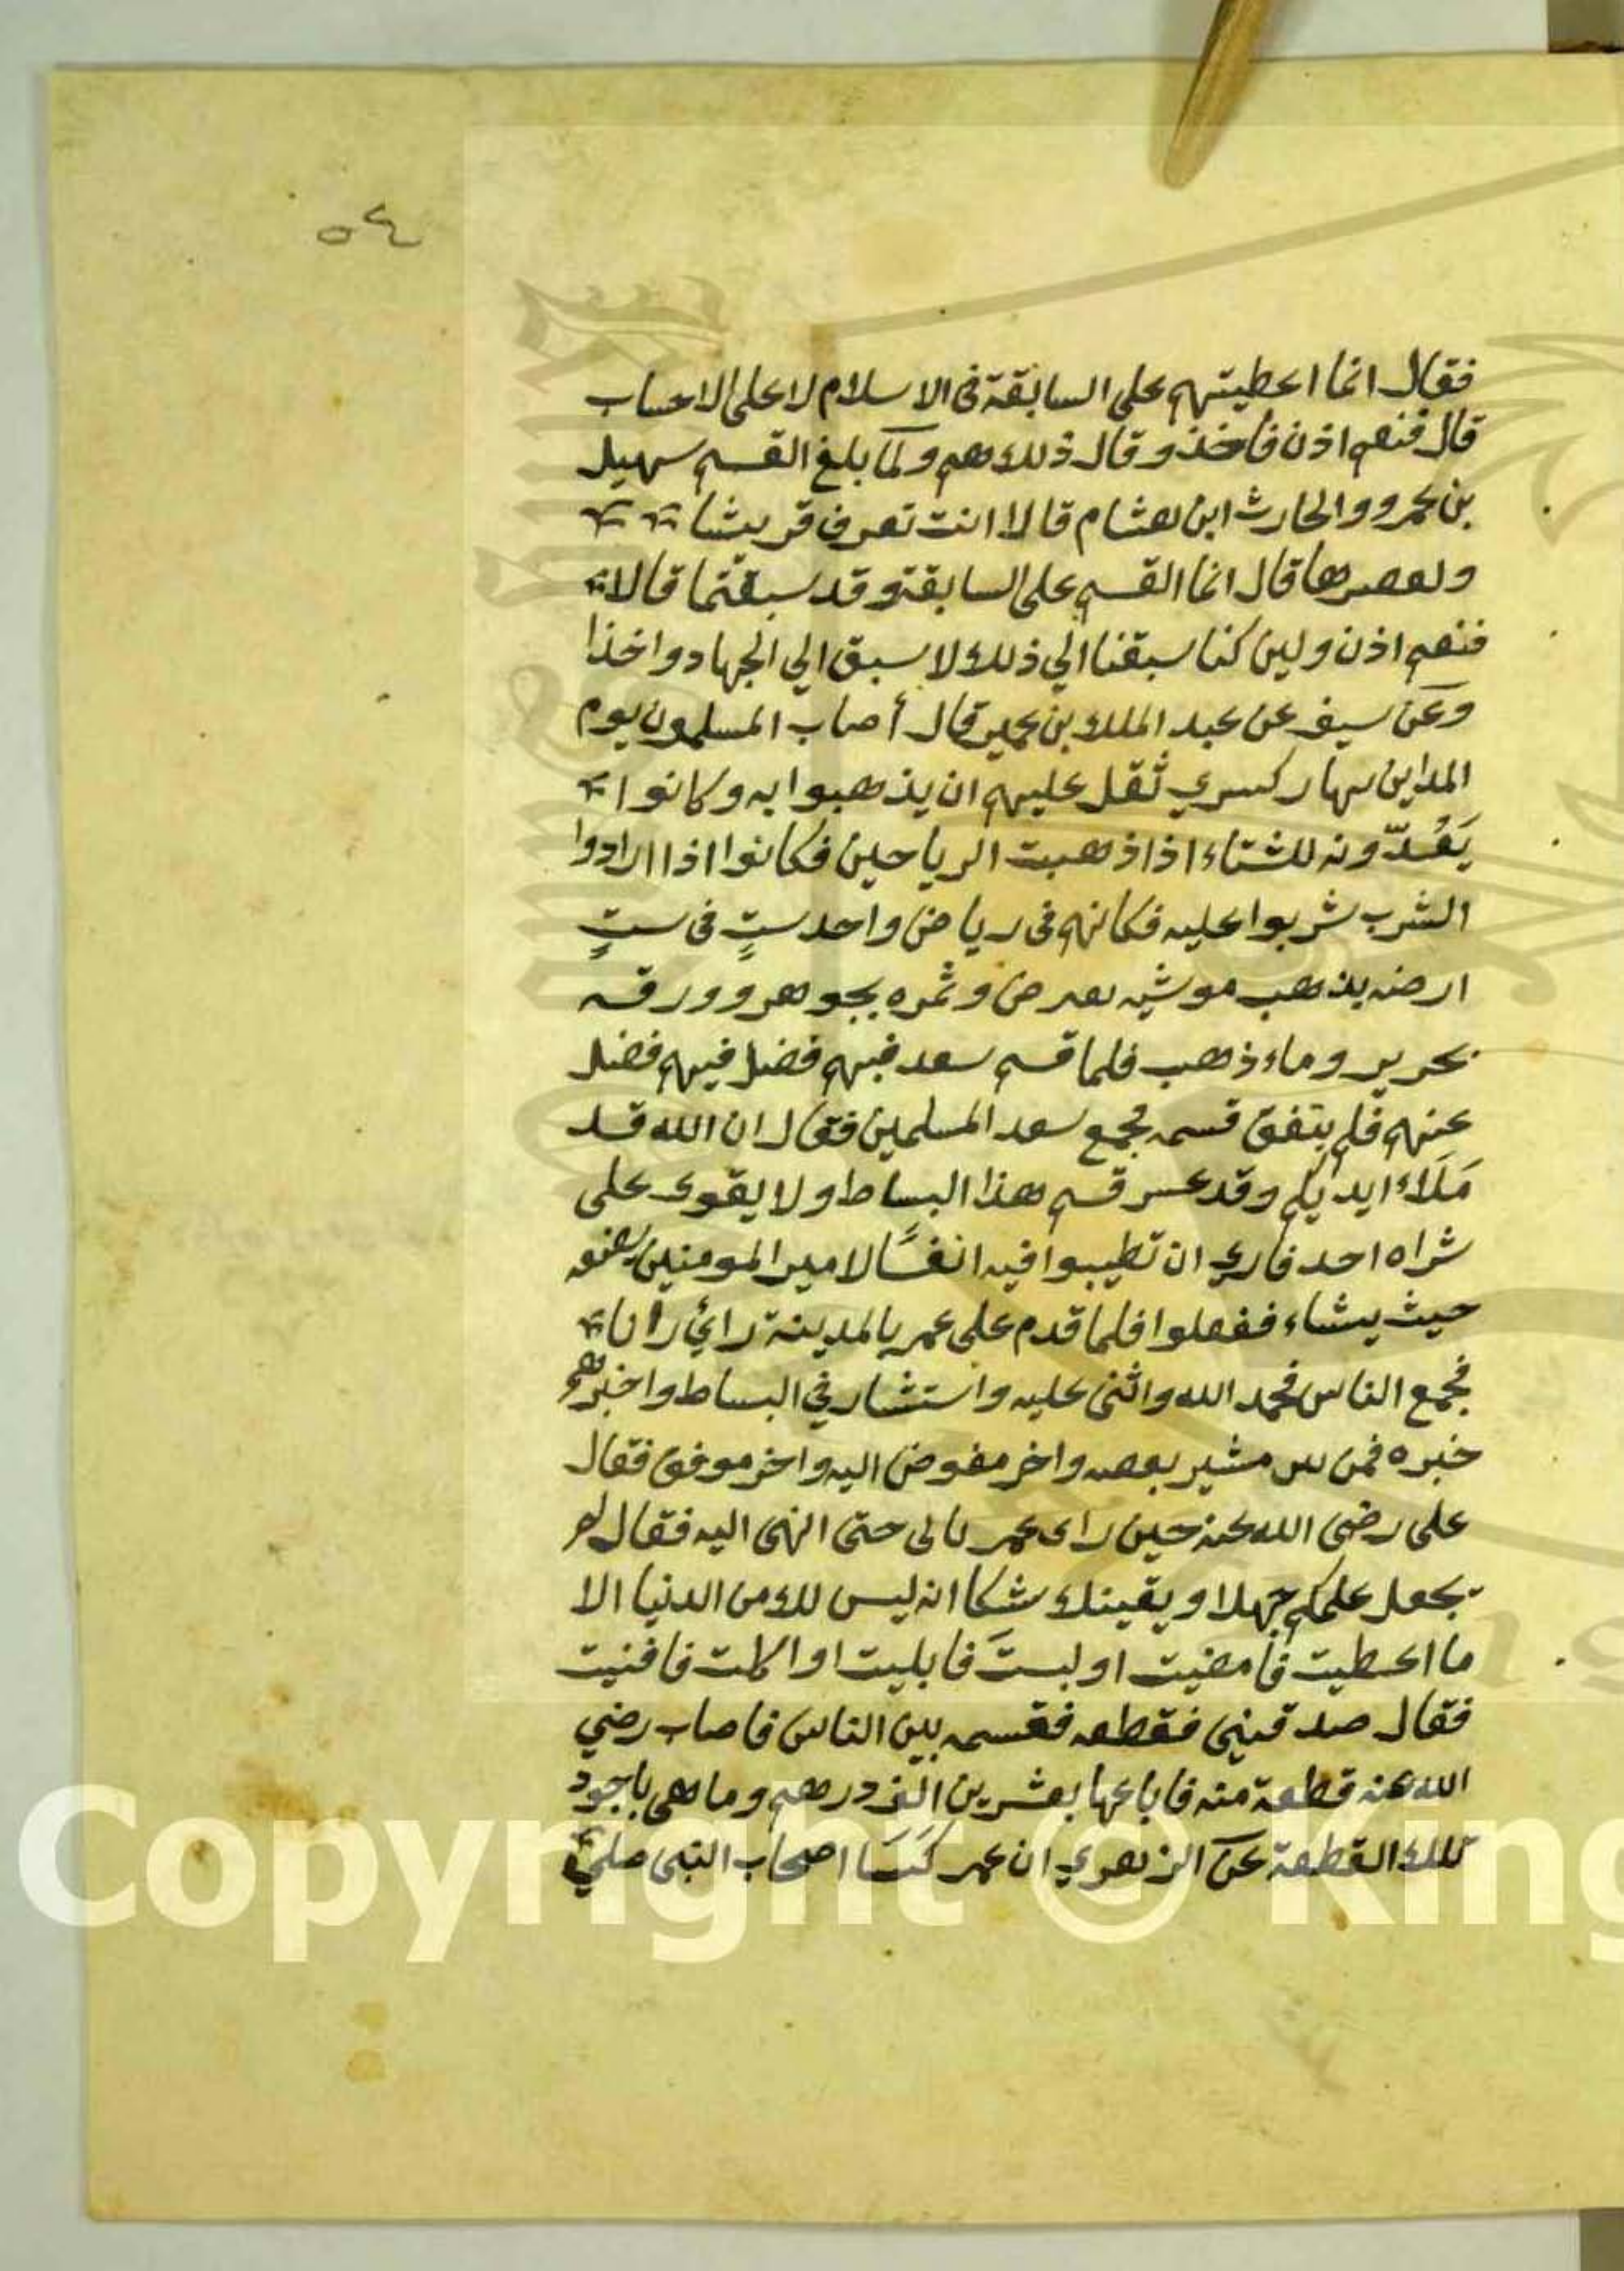 ٥٤
فقال انما اعطيتهم على السابقة فى الاسلام لا على الاحساب
قال فنعم اذن فاخذ وقال ذلك هم ولما بلغ القسم سهيل
بن عمرو والحارث ابن هشام قالا انت تعرف قريشا
قال انما القسم على السابقة وقد سبقتما قالا
فنعم اذن ولين كنا سبقنا الي ذلك لا سبق الي الجهاد واخذا
وعن سيف عن عبد الملك بن عمير قال أصاب المسلمون يوم
المداين بهار كسري ثقل عليهم ان يذهبوا به وكانوا
يَعُدّونه للشتاء اذا ذهبت الرياحين فكانوا اذا ارادوا
الشرب شربوا عليه فكانهم فى رياض واحد ستٍ فى ستٍ
ارضه بذهب موشيه وثمره بجوهر وورقه
بحرير وماء ذهب فلما قسم سعد فيهم فضل فيهم فضل
عنهم فلم يتفق قسمه فجمع سعد المسلمين فقال ان الله قد
مَلَاءَ ايديكم وقد عسر قسم هذا البساط ولا يقوى على
شراه احد فاري ان تطيبوا فيه انفسًا لامير المومنين يضعه
حيث يشاء ففعلوا فلما قدم على عمر بالمدينة رائ رأنا
فجمع الناس فحمد الله واثنى عليه واستشار في البساط واخبرهم
خبره فمن مشير واخر مفوض اليه واخر موفق فقال
على رضى الله عنه حين راى عمر حتى انتهى اليه فقال لم
تجعل علمكم جهلا ويقينك شكا انه ليس لك من الدنيا الا
ما اعطيت فامضيت او لبستَ فابليت او اكلت فافنيت
فقال صدقتنى فقطعه فقسمه بين الناس فاصاب رضي
الله عنه قطعة منه فاباعها بعشرين الف درهم وما هى باجود
تلك القطعة عن الزهري ان عمر كسَا اصحاب النبى صلى
Copyright © King